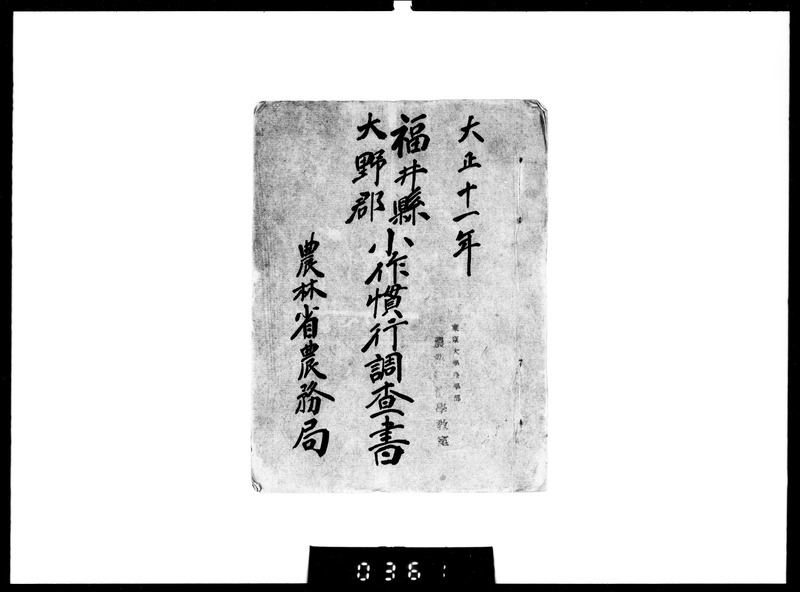 大正十一年
福井縣
大野郡
小作慣行調査書
農林省農務局
東京大學
農
學教室
0361